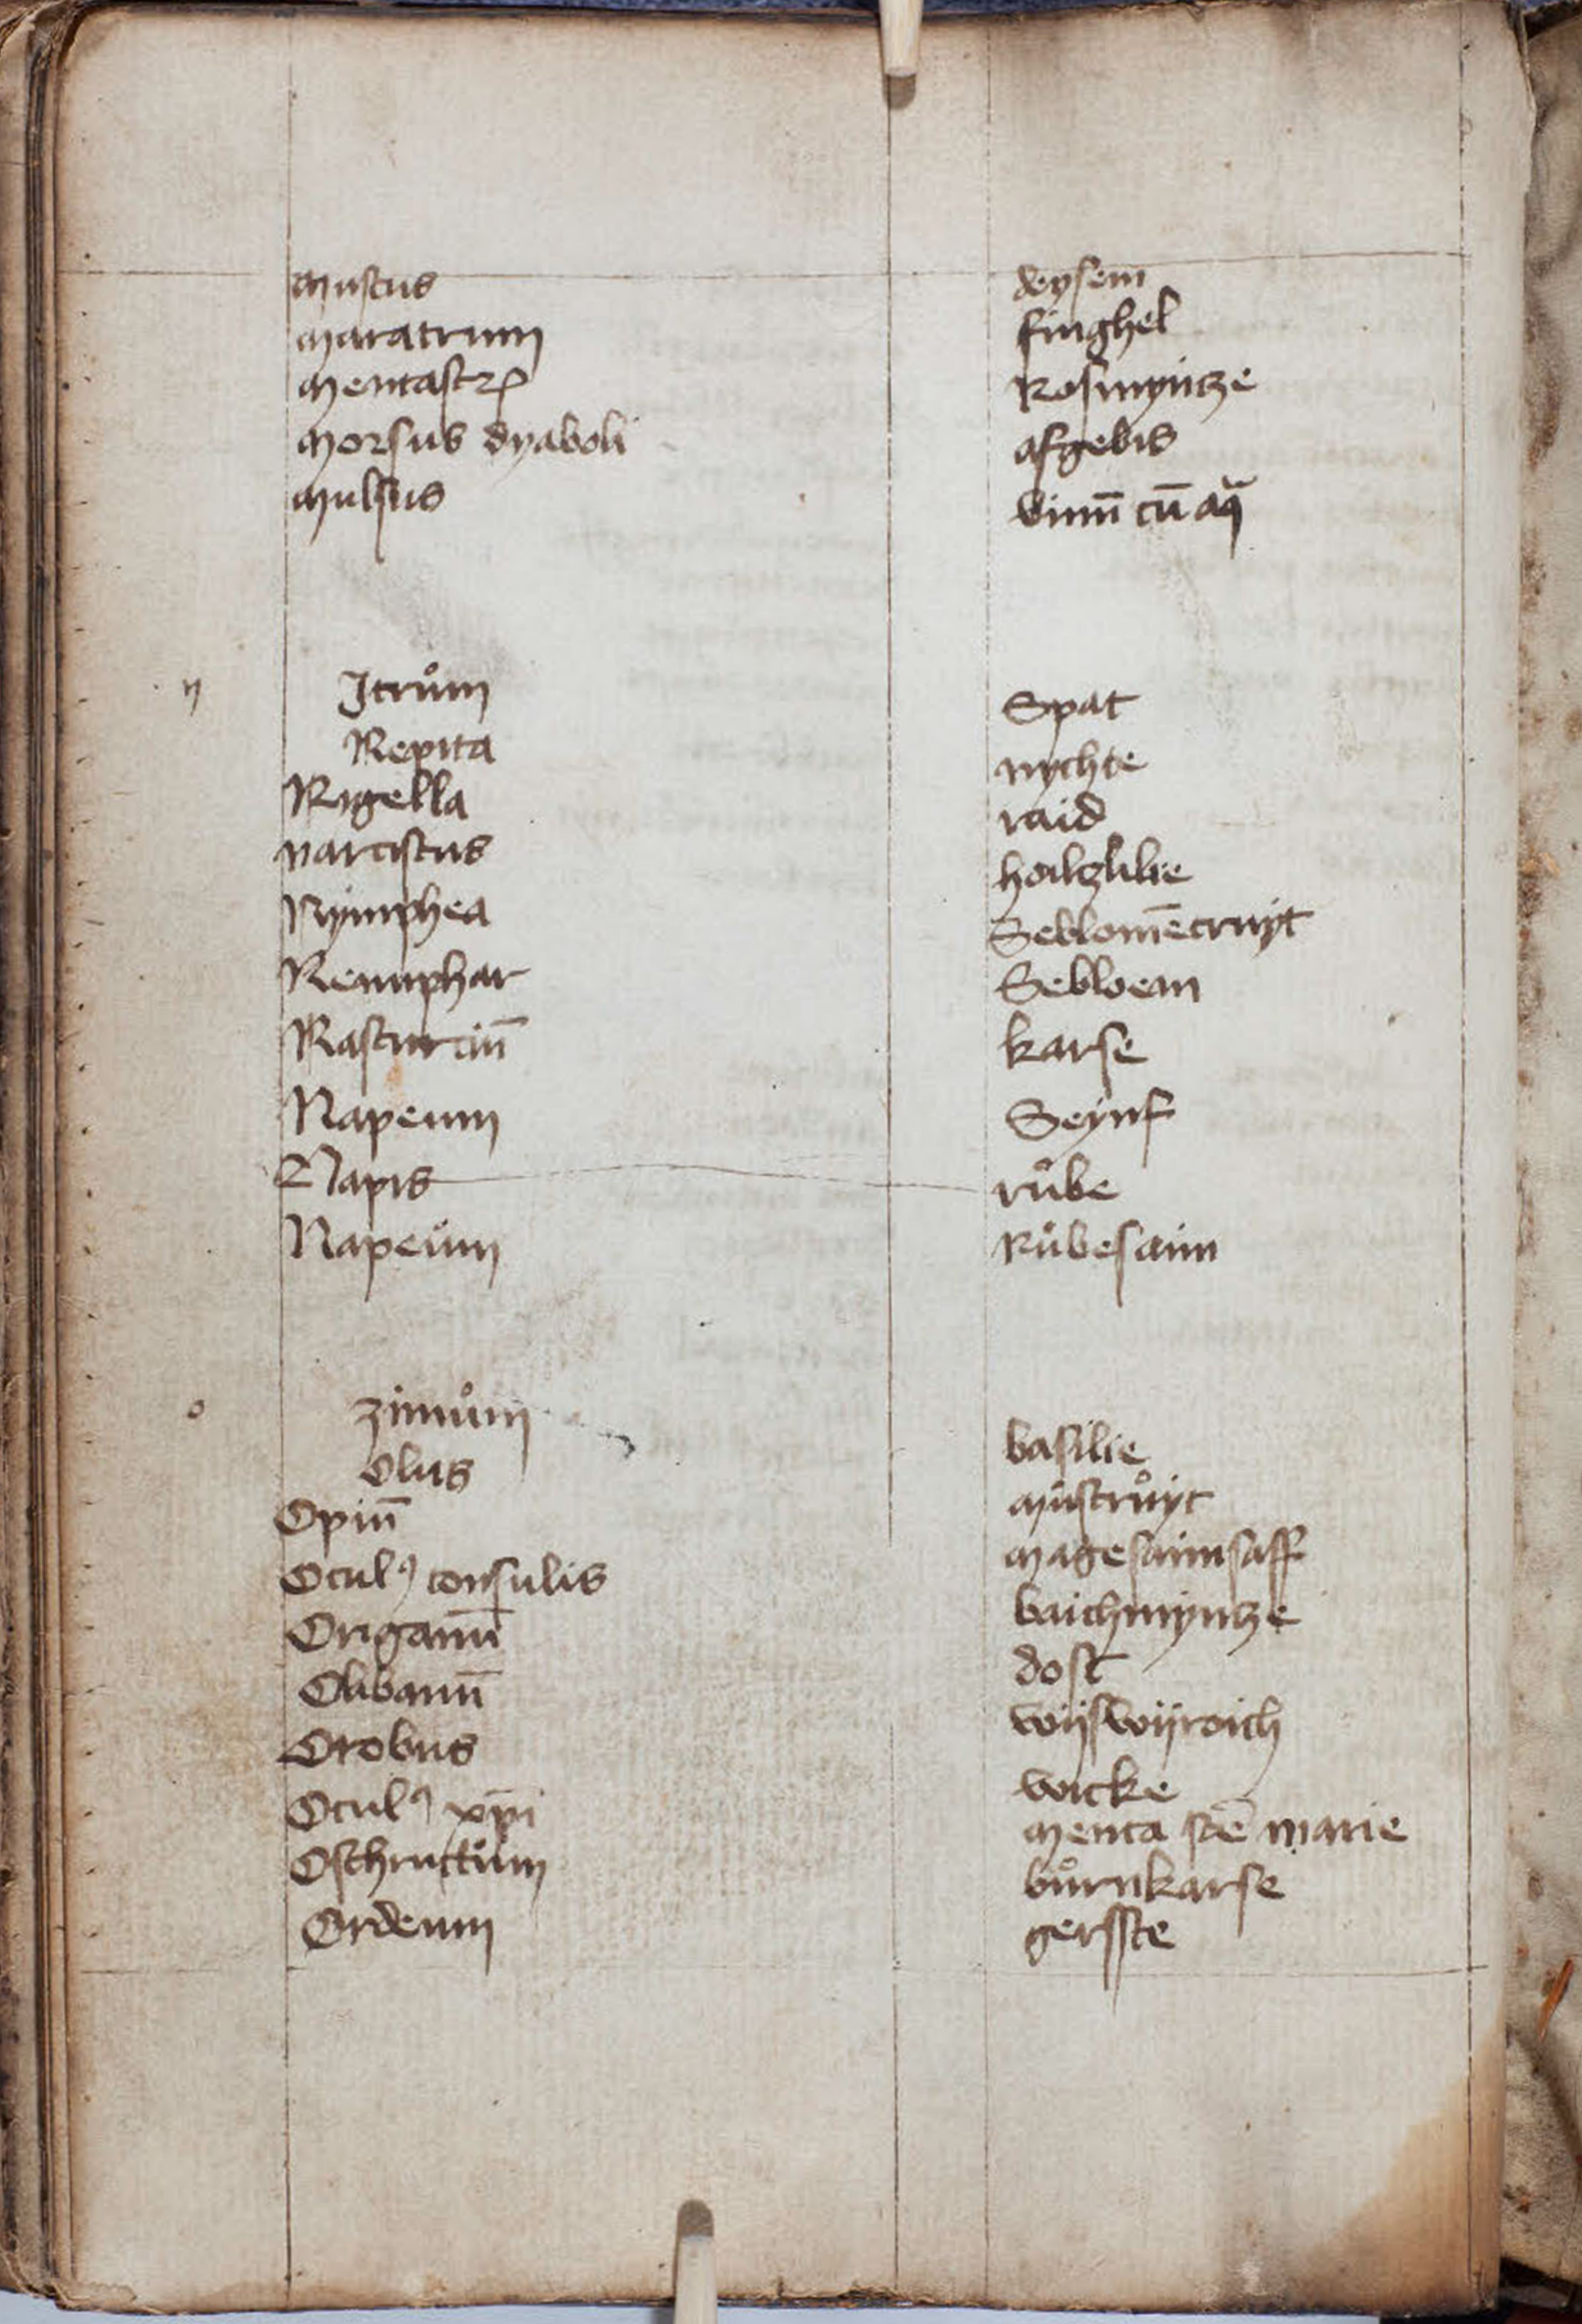 muscus deysem
maratrum finghel
mentastrꝝ Rosmyntze
morsus dyaboli afgebis
mulsus vinū cū aq̄
n Jtrům Spat
Nepita nychte
Nigella raid
narciscus hoiltzlilie
Nymphea Seblomēcruyt
Nenuphar Sebloem
Nasturciū karse
Napeum Seynf
Napis růbe
Napeům Růbesaim
o zimům basilie
Olus můstrůyt
Opiū magesaimsaff
Oculꝰ consulis baichmyntze
Origanū dost
Olibanū wijswijroich
Orobus wicke
Oculꝰ xp̄i menta scē marie
Osthruttům bůrnkarse
Ordeum gersste